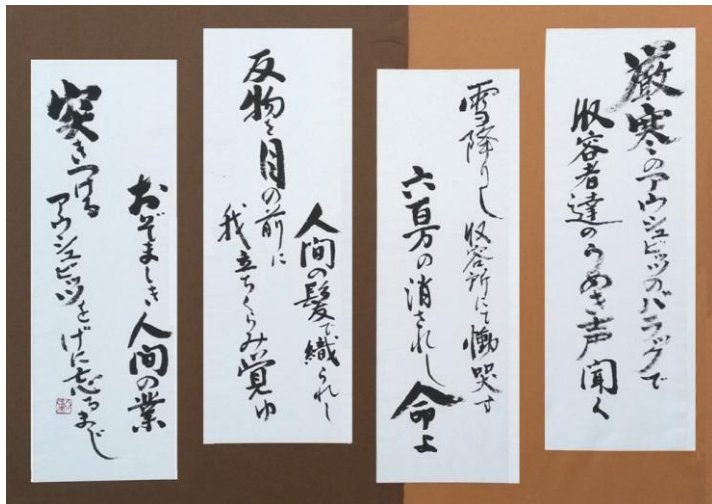 厳寒のアウシュビッツのバラックで
収容者達のうめき声聞く
雪降りし収容所にて慟哭す
六百万の消されし命よ
人間の髪で織られし
反物を目の前に
我立ちくらみ覚ゆ
おぞましき人間の業
突きつける
アウシュビッツをげに忘るまじ